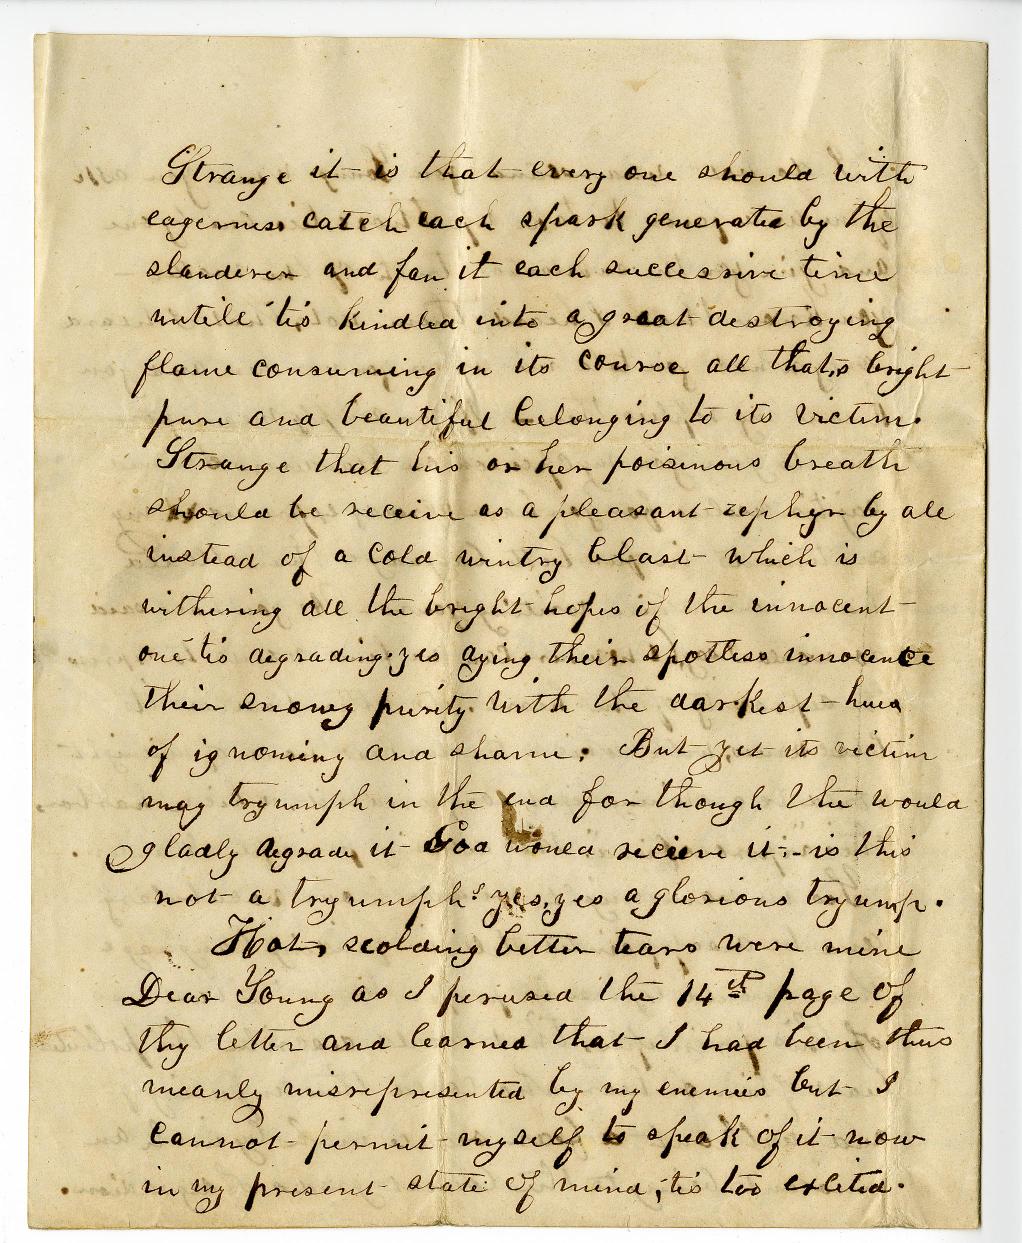 Strange it is that every one should with
eagerness catch each spark generated by the
slanderer and fan it each successive time
untill 'tis kindled into a great destroying
flame consuming in its course all that,s bright
pure and beautiful belonging to its victim.
Strange that his or her poisinous breath
should be receive as a pleasant zephyr by all
instead of a cold wintry blast which is
withering all the bright hopes of the innocent
one 'tis degrading. yes dying their spotless innocence
their snowy purity with the darkest hues
of ignominy and shame; But yet its victim
may tryumph in the end for though the would
gladly degrade it God would recieve it; - is this
not a tryumph? yes, yes a glorious tryump.
Hot, scolding better tears were mine
Dear Young as I perused the 14th page of
thy letter and learned that I had been thus
meanly misrepresented by my enemies but I
cannot permit myself to speak of it now
in my present state of mind; 'tis too exlited.